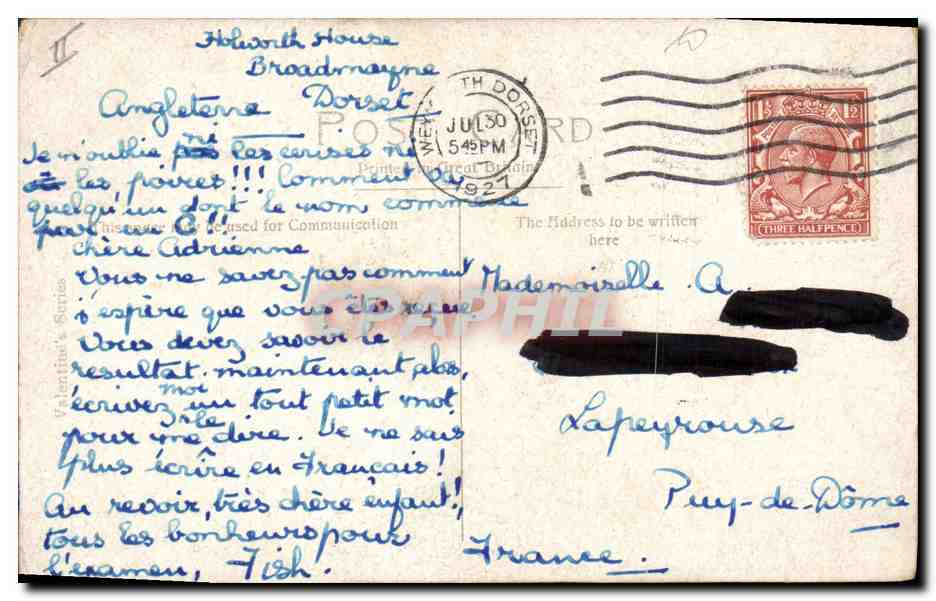 II
Holworth House
Broadmayne
Angleterre Dorset
POST CARD
Printed in Great Britain
WEYMOUTH DORSET
JUL 30
5 45 PM
1927
1½
THREE HALFPENCE
Je n'oublie ni les cerises ni
les poires!!! Comment va
quelqu'un dont le nom commence
par un G!!
This space may be used for Communication
The Address to be written
here
Valentine's Series
chère Adrienne
Vous ne savez pas comment
j'espère que vous êtes reçue
Vous devez savoir le
résultat maintenant, alors,
écrivez moi un tout petit mot
pour me le dire. Je ne sais
plus écrire en Français!
Au revoir, très chère enfant!,
tous les bonheurs pour
l'examen, Fish.
Mademoiselle A.
Lapeyrouse
Puy-de-Dôme
France.
CPAPHIL